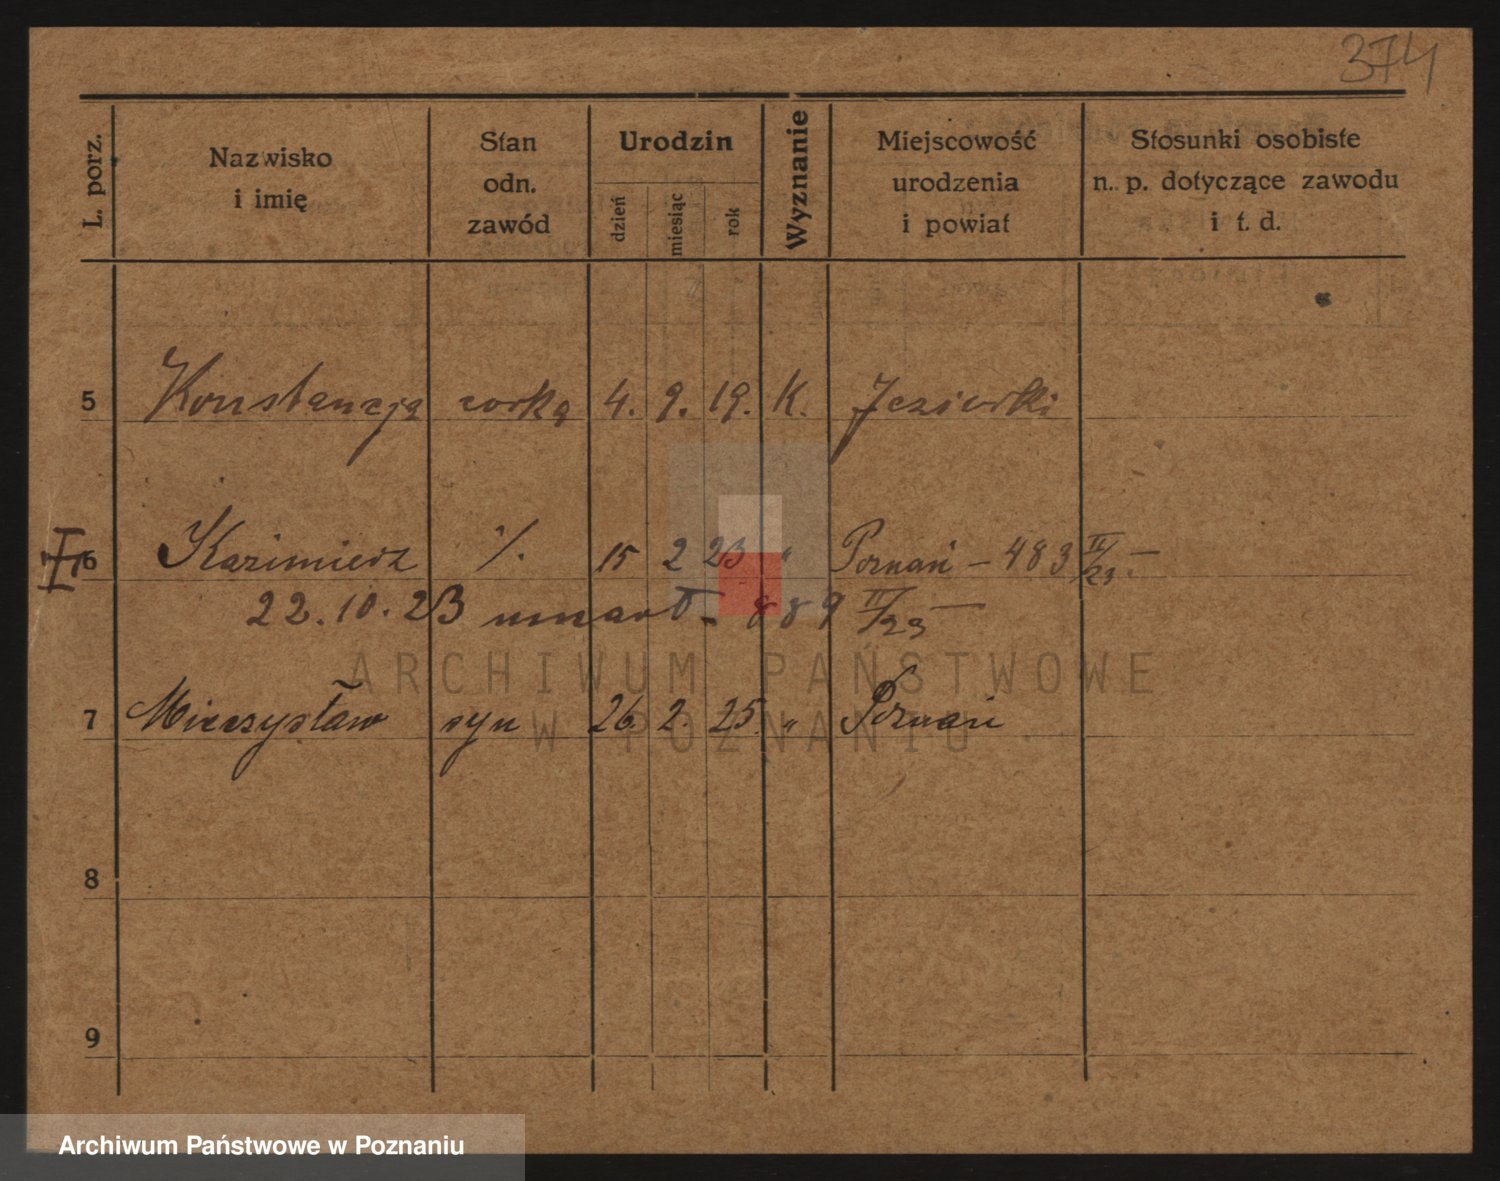 374
L. porz. Nazwisko i imię Stan odn. zawód Urodzin dzień miesiąc rok Wyznanie Miejscowość urodzenia i powiat Stosunki osobiste n. p. dotyczące zawodu i t. d.
5 Konstancja corka 4. 9. 19. K. Jeziorki
6 Kazimierz ./. 15 2 23 " Poznań – 483 II/23. –
22.10.23 umarł. 889 II/23 –
7 Mieczysław syn 26. 2. 25. " Poznań
8
9
ARCHIWUM PAŃSTWOWE
W POZNANIU
Archiwum Państwowe w Poznaniu